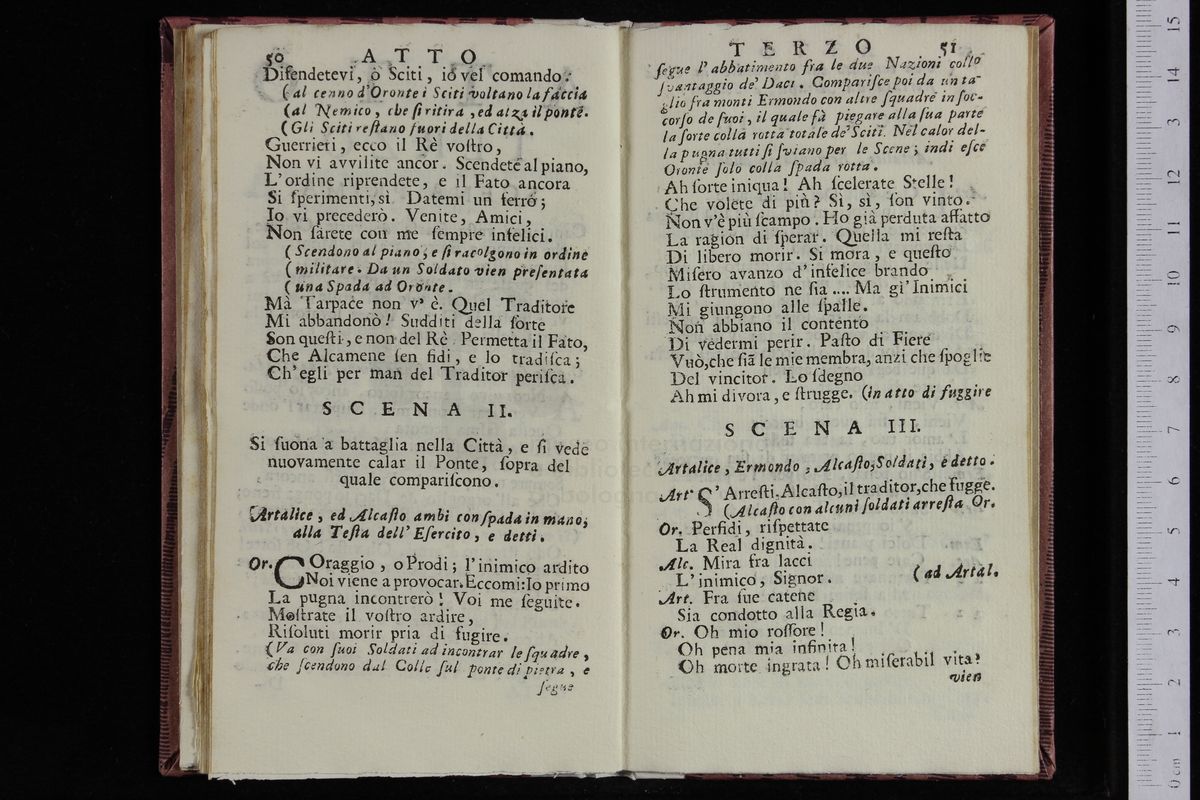 50 ATTO
Difendetevi, ò Sciti, io vel comando.
(al cenno d'Oronte i Sciti voltano la faccia
(al Nemico, che si ritira, ed alza il ponte.
(Gli Sciti restano fuori della Città.
Guerrieri, ecco il Rè vostro,
Non vi avvilite ancor. Scendete al piano,
L'ordine riprendete, e il Fato ancora
Si sperimenti, sì Datemi un ferro;
Io vi precederò. Venite, Amici,
Non sarete con me sempre infelici.
(Scendono al piano, e si racolgono in ordine
(militare. Da un Soldato vien presentata
(una Spada ad Oronte.
Mà Tarpace non v'è. Quel Traditore
Mi abbandonò! Sudditi della sorte
Son questi, e non del Rè. Permetta il Fato,
Che Alcamene sen fidi, e lo tradisca;
Ch'egli per man del Traditor perisca.
SCENA II.
Si suona a battaglia nella Città, e si vede
nuovamente calar il Ponte, sopra del
quale compariscono.
Artalice, ed Alcasto ambi con spada in mano,
alla Testa dell'Esercito, e detti.
Or. COraggio, o Prodi; l'inimico ardito
Noi viene a provocar. Eccomi: Io primo
La pugna incontrerò! Voi me seguite.
Mostrate il vostro ardire,
Risoluti morir pria di fugire.
(Va con suoi Soldati ad incontrar le squadre,
che scendono dal Colle sul ponte di pietra, e
segue
TERZO 51
segue l'abbatimento fra le due Nazioni collo
svantaggio de' Daci. Comparisce poi da un ta-
glio fra monti Ermondo con altre squadre in soc-
corso de suoi, il quale fà piegare alla sua parte
la sorte colla rotta totale de' Sciti. Nel calor del-
la pugna tutti si sviano per le Scene; indi esce
Oronte solo colla spada rotta.
Ah sorte iniqua! Ah scelerate Stelle!
Che volete di più? Sì, sì, son vinto.
Non v'è più scampo. Ho già perduta affatto
La ragion di sperar. Quella mi resta
Di libero morir. Si mora, e questo
Misero avanzo d'infelice brando
Lo strumento ne sia.... Ma gl'Inimici
Mi giungono alle spalle.
Non abbiano il contento
Di vedermi perir. Pasto di Fiere
Vuò, che siā le mie membra, anzi che spoglie
Del vincitor. Lo sdegno
Ah mi divora, e strugge. (in atto di fuggire
SCENA III.
Artalice, Ermondo, Alcasto, Soldati, e detto.
Art. S'Arresti, Alcasto, il traditor, che fugge.
(Alcasto con alcuni soldati arresta Or.
Or. Perfidi, rispettate
La Real dignità.
Alc. Mira fra lacci
L'inimico, Signor. (ad Artal.
Art. Fra sue catene
Sia condotto alla Regia.
Or. Oh mio rossore!
Oh pena mia infinita!
Oh morte ingrata! Oh miserabil vita?
vien
15
14
3
12
11
10
9
8
7
6
5
4
3
2
1
0 cm